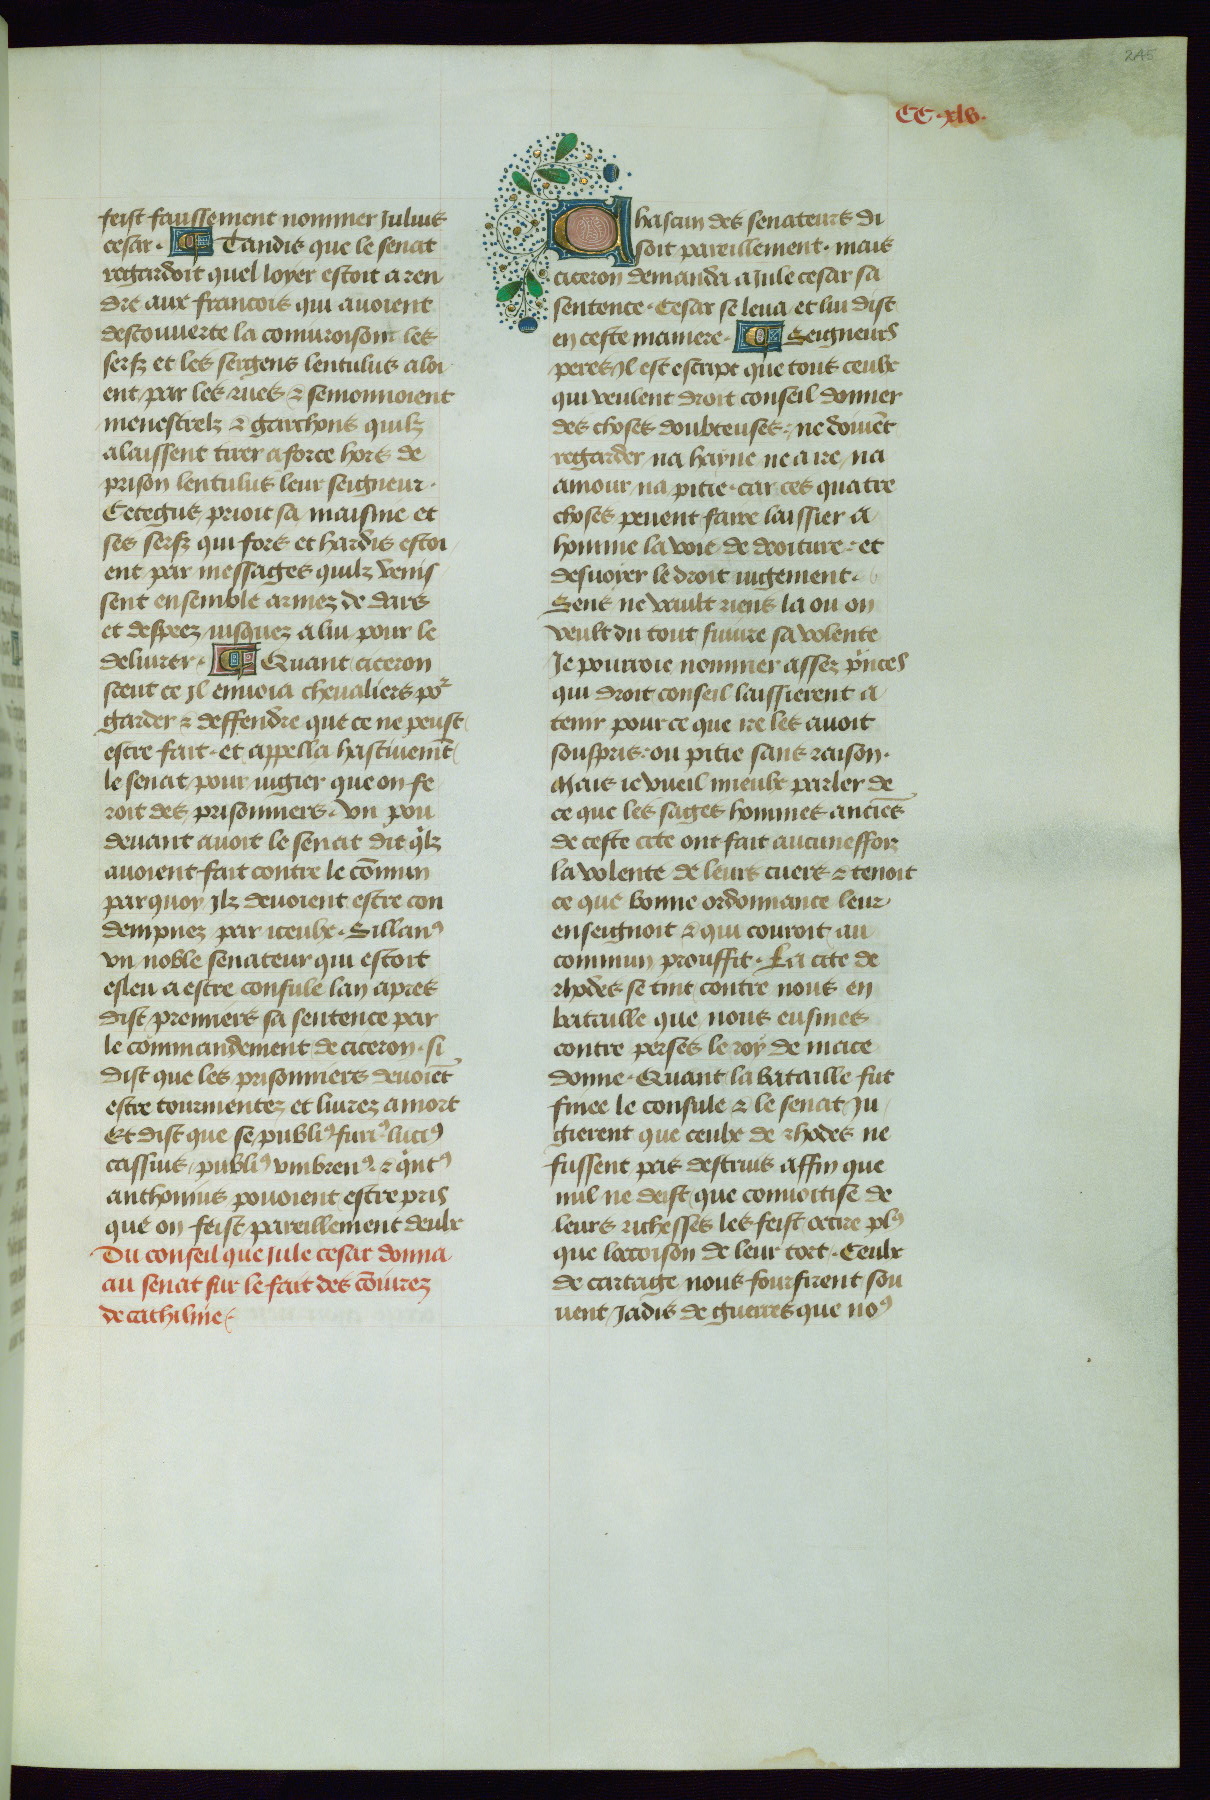 245
CC.xlv.
feist faussement nommer Julius
cesar. Tandis que le senat
regardoit quel loyer estoit a ren
dre aux francois qui auoient
descouuerte la coniuroison les
serfz et les sergens lentulus aloi
ent par les rues & semonnoient
menestrelz & garchons quilz
alaissent tirer a force hors de
prison lentulus leur seigneur.
Cetegus prioit sa maisnie et
ses serfz qui fors et hardis estoi
ent par messages quilz venis
sent ensemble armez de dars
et despees iusques a lui pour le
deliurer. Quant ciceron
sceut ce Jl enuoia cheualiers por
garder & deffendre que ce ne peust
estre fait. et appella hastiuemt
le senat pour iugier que on fe
roit des prisonniers. Vn pou
deuant auoit le senat dit qlz
auoient fait contre le cōmun
parquoy Jlz deuoient estre con
dempnez par iceulx. Sillanꝰ
vn noble senateur qui estoit
esleu a estre consule lan apres
dist premiers sa sentence par
le commandement de ciceron. si
dist que les prisonniers deuoiēt
estre tourmentez et liurez a mort
Et dist que se publiꝰ furiꝰ luciꝰ
cassius publiꝰ vmbrenꝰ & qntꝰ
anthonius pouoient estre pris
que on feist pareillement deulx
Du conseil que Jule cesar donna
au senat sur le fait des cōiurez
de cathiline
Chascun des senateurs di
soit pareillement. mais
ciceron demanda a Jule cesar sa
sentence. Cesar se leua et lui dist
en ceste maniere. Seigneurs
peres Jl est escript que tous ceulx
qui veulent droit conseil donner
des choses doubteuses. ne doiuēt
regarder na hayne ne a ire, na
amour, na pitie. car ces quatre
choses peuent faire laissier a
homme la voie de droiture. et
desuoyer le droit iugement.
Sens ne vault riens la ou on
veult du tout suiure sa volente
Je pourroie nommer assez princes
qui droit conseil laissierent a
tenir pour ce que ire les auoit
souspris. ou pitie sans raison.
Mais ie vueil mieulx parler de
ce que les sages hommes anciēs
de ceste cite ont fait aucuneffois
la volente de leurs cuers & tenoit
ce que bonne ordonnance leur
enseignoit & qui couroit au
commun prouffit. La cite de
rhodes se tint contre nous en
bataille que nous eusmes
contre perses le roy de mace
donne. Quant la bataille fut
finee le consule & le senat Ju
gierent que ceulx de rhodes ne
fussent pas destruis affin que
nul ne deist que conuoitise de
leurs richesses les feist octire plꝰ
que loccoison de leur tort. Ceulx
de cartage nous fourfirent sou
uent Jadis de guerres que noꝰ